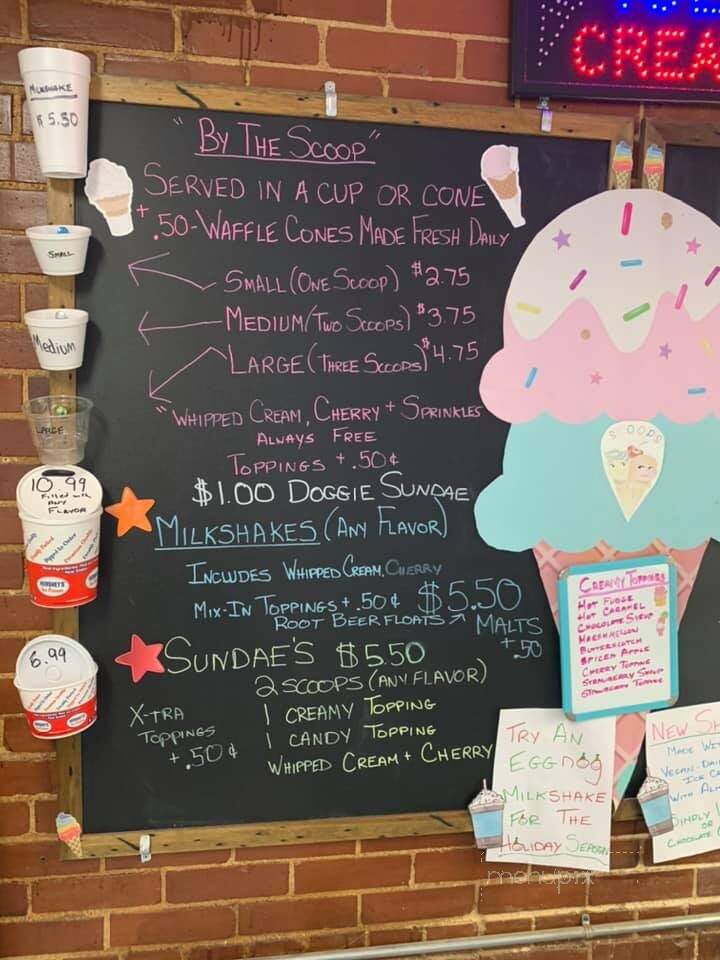 CREA
MILKSHAKE
$ 5.50
SMALL
Medium
LARGE
10.99
Filled with
ANY
FLAVOR
HERSHEY'S
6.99
"BY THE SCOOP"
SERVED IN A CUP OR CONE
+ .50-WAFFLE CONES MADE FRESH DAILY
SMALL (ONE SCOOP) $2.75
MEDIUM (TWO SCOOPS) $3.75
LARGE (THREE SCOOPS) $4.75
"WHIPPED CREAM, CHERRY + SPRINKLES
ALWAYS FREE
TOPPINGS +.50¢
$1.00 DOGGIE SUNDAE
MILKSHAKES (ANY FLAVOR)
INCLUDES WHIPPED CREAM, CHERRY
MIX-IN TOPPINGS +.50¢ $5.50
ROOT BEER FLOATS MALTS
+.50
SUNDAE'S $5.50
2 SCOOPS (ANY FLAVOR)
1 CREAMY TOPPING
1 CANDY TOPPING
WHIPPED CREAM + CHERRY
X-TRA
TOPPINGS
+.50¢
SCOOPS
CREAMY TOPPINGS
HOT FUDGE
HOT CARAMEL
CHOCOLATE SYRUP
MARSHMELLOW
BUTTERSCOTCH
SPICED APPLE
CHERRY TOPPING
STRAWBERRY SYRUP
STRAWBERRY TOPPING
TRY AN
EGGNOG
MILKSHAKE
FOR THE
HOLIDAY SEASON
NEW
MADE WI
VEGAN-DAI
ICE C
WITH ALM
OR
CHOCOLATE
menupix